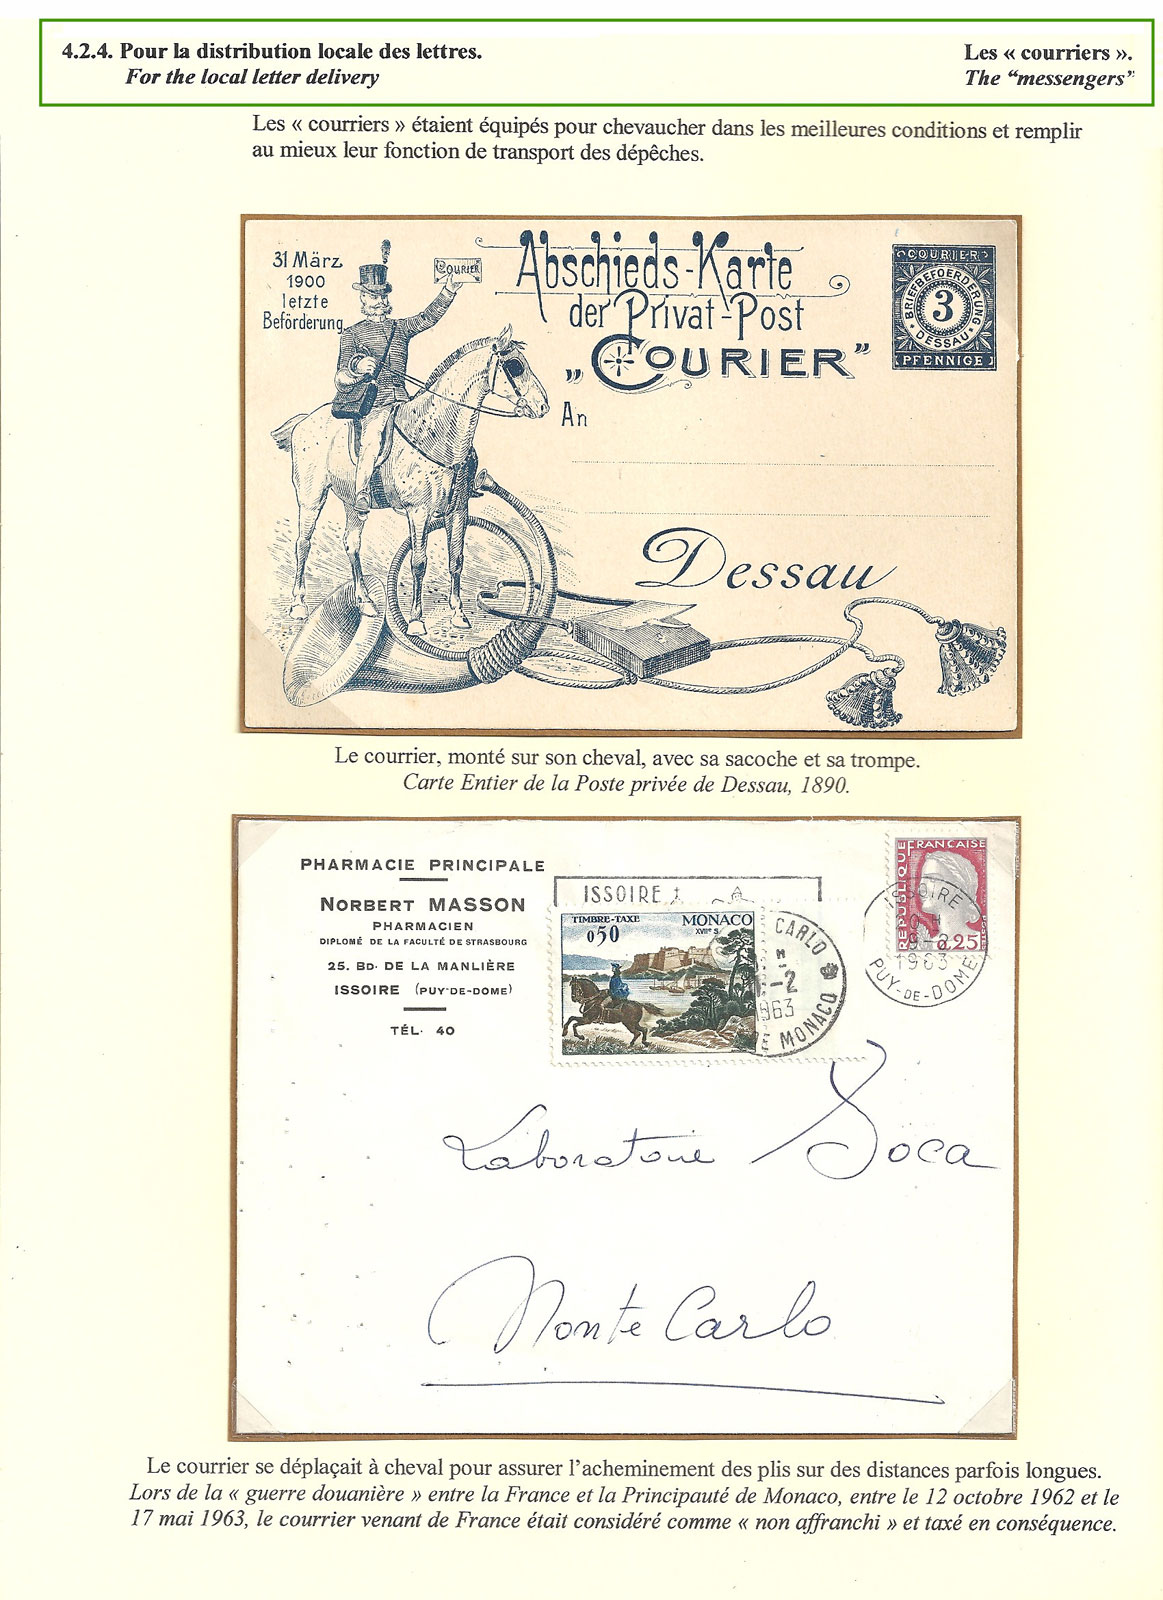 4.2.4. Pour la distribution locale des lettres.
Les « courriers ».
For the local letter delivery
The “messengers”
Les « courriers » étaient équipés pour chevaucher dans les meilleures conditions et remplir
au mieux leur fonction de transport des dépêches.
31 März
1900
letzte
Beförderung
COURIER
Abschieds-Karte
der Privat-Post
„COURIER”
An
Dessau
COURIER
BRIEFBEFOERDERUNG
3
DESSAU
PFENNIGE
Le courrier, monté sur son cheval, avec sa sacoche et sa trompe.
Carte Entier de la Poste privée de Dessau, 1890.
PHARMACIE PRINCIPALE
NORBERT MASSON
PHARMACIEN
DIPLOMÉ DE LA FACULTÉ DE STRASBOURG
25. BD. DE LA MANLIÈRE
ISSOIRE (PUY-DE-DOME)
TÉL. 40
ISSOIRE
TIMBRE-TAXE
0,50
MONACO
XVIIe S
CARLO
-2
1963
MONACO
REPUBLIQUE FRANCAISE
0,25
POSTES
ISSOIRE
9-2
1963
PUY-DE-DOME
Laboratoire Soca
Monte Carlo
Le courrier se déplaçait à cheval pour assurer l’acheminement des plis sur des distances parfois longues.
Lors de la « guerre douanière » entre la France et la Principauté de Monaco, entre le 12 octobre 1962 et le
17 mai 1963, le courrier venant de France était considéré comme « non affranchi » et taxé en conséquence.